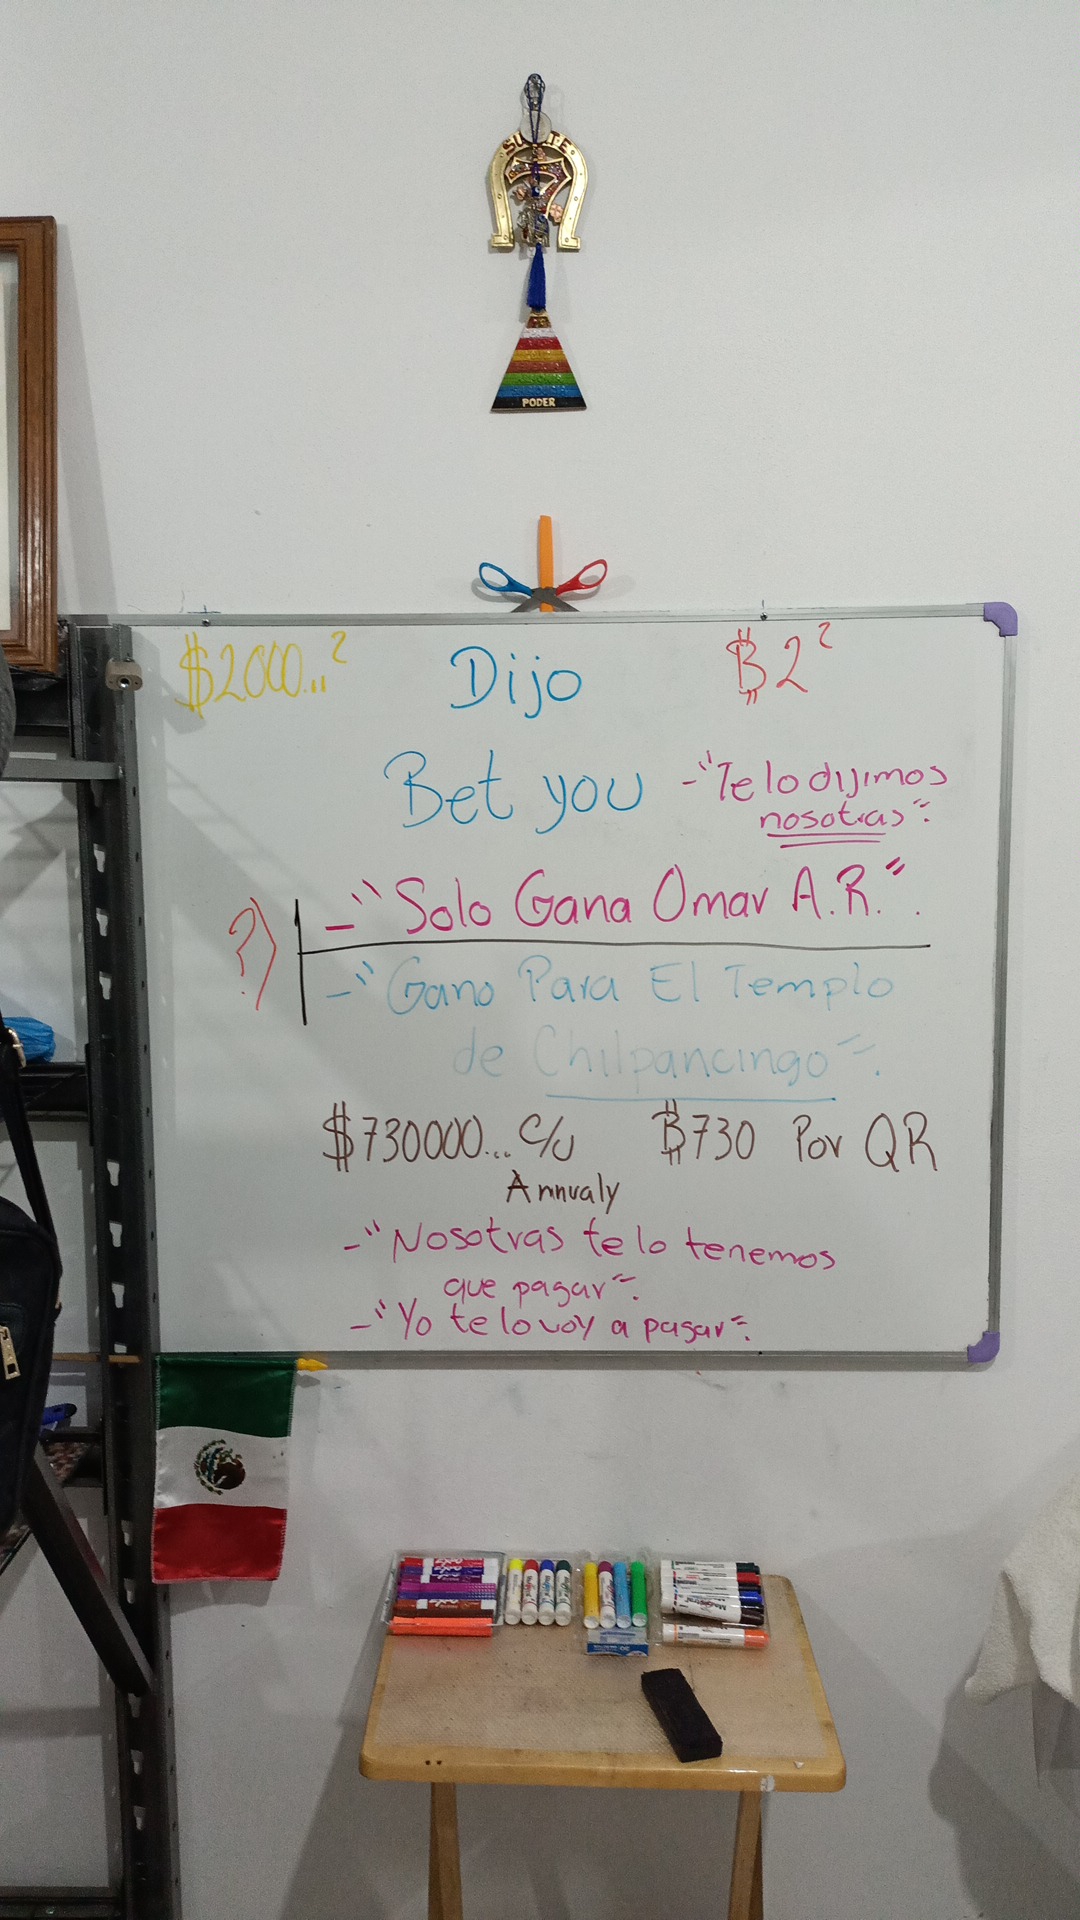 SUERTE
7
PODER
$2000...²
Dijo
₿2²
Bet you
-"Te lo dijimos
nosotras".
?)
-"Solo Gana Omar A.R.".
-"Gano Para El Templo
de Chilpancingo".
$730000... c/u
₿730 Por QR
Annualy
-"Nosotras te lo tenemos
que pagar".
-"Yo te lo voy a pagar".